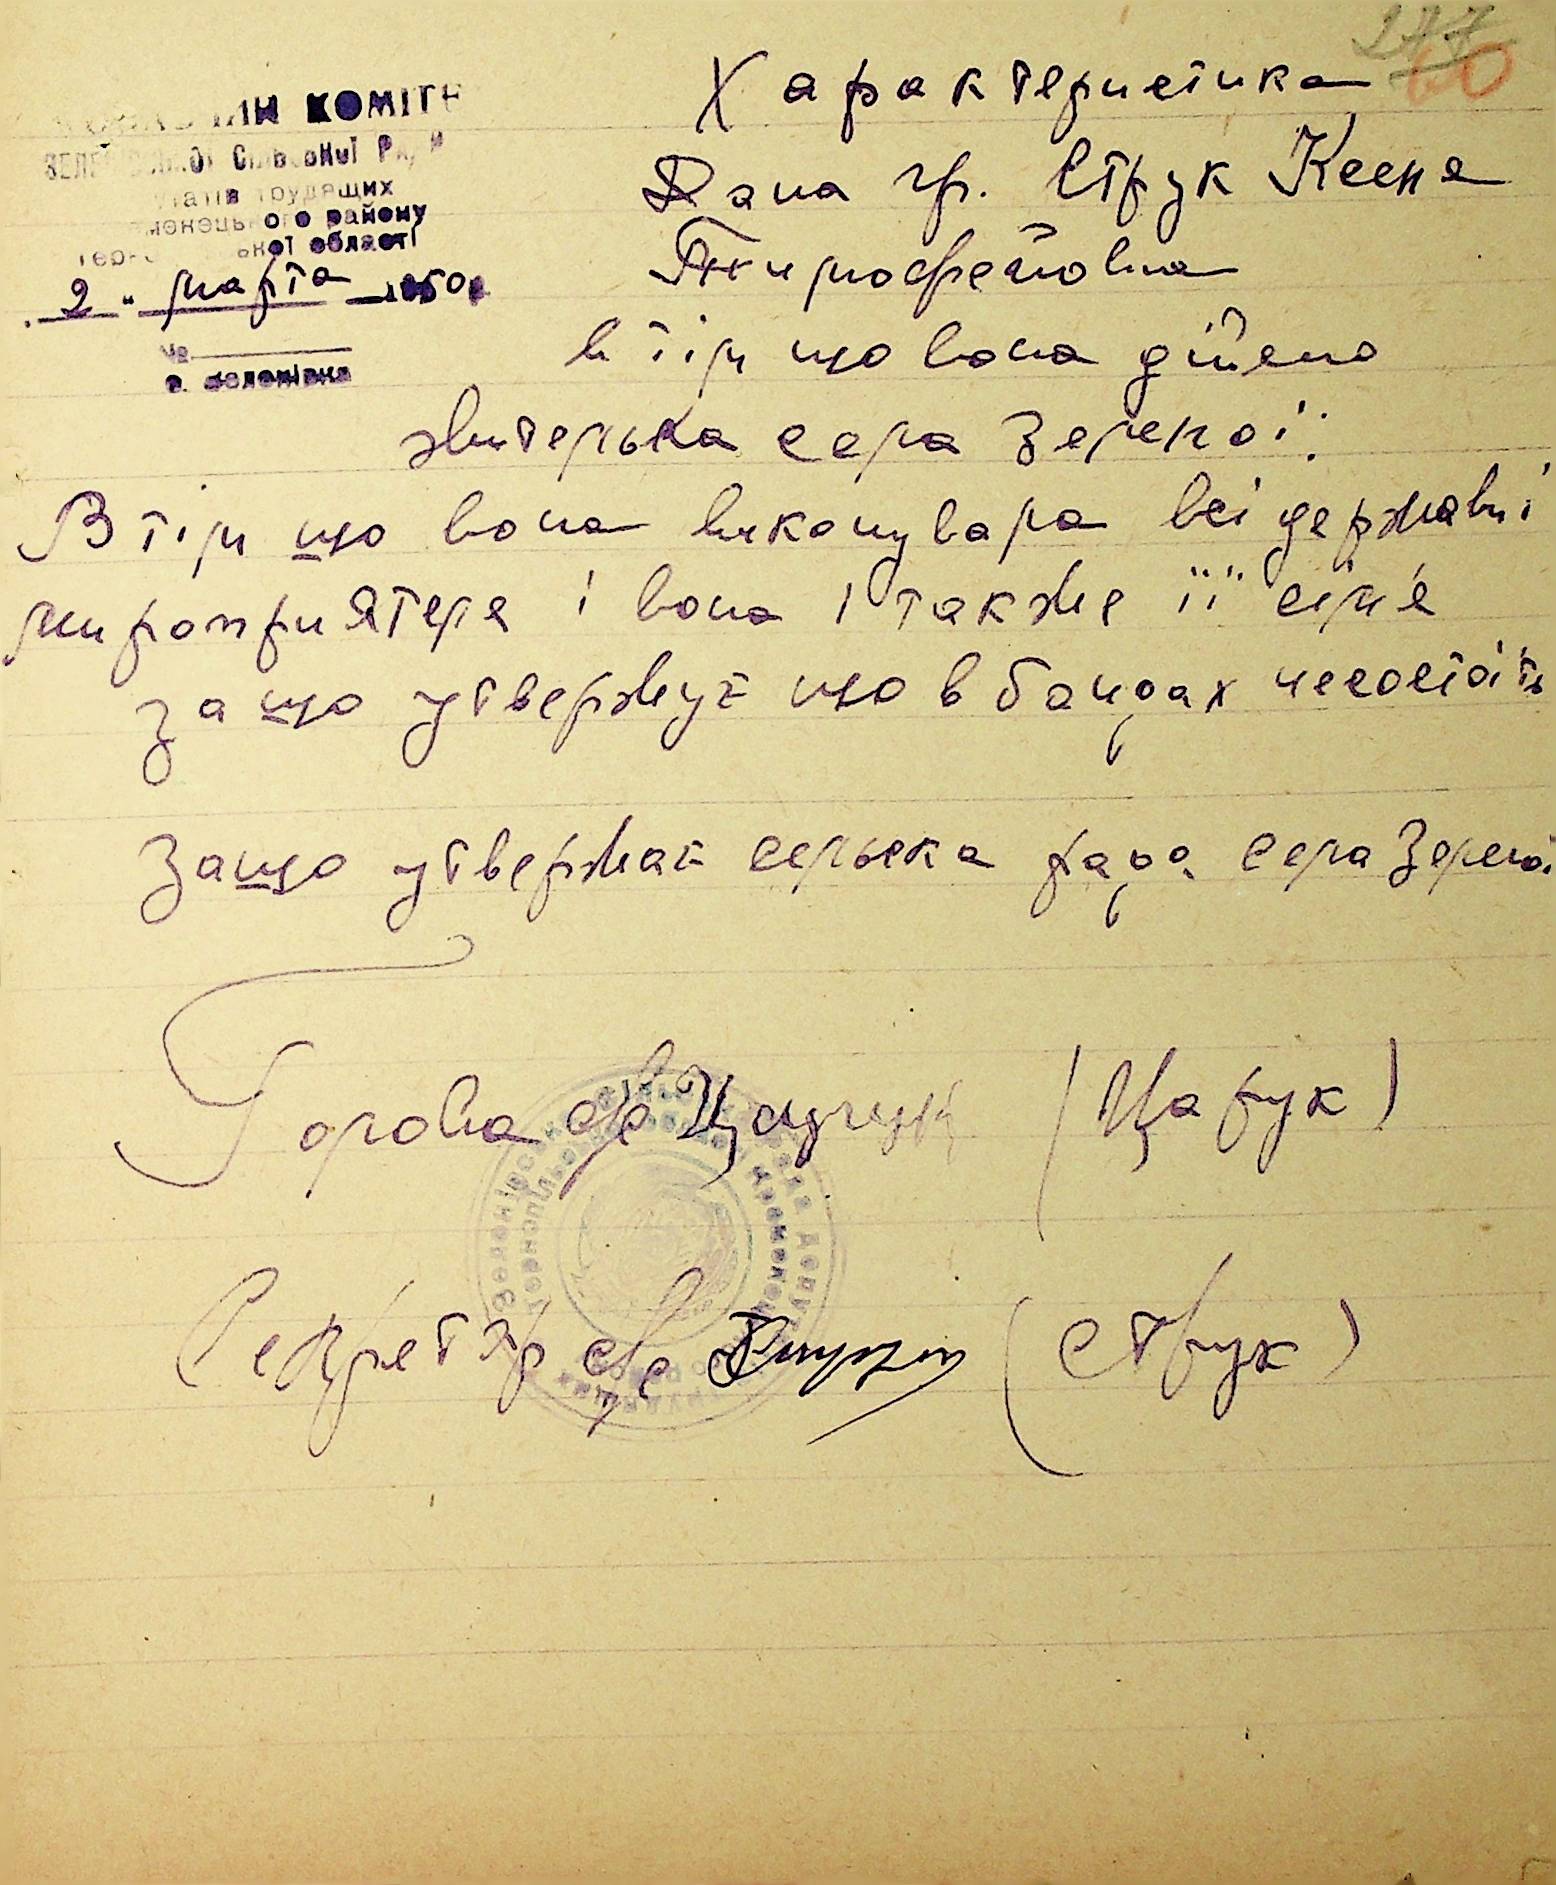 277
60
КОМІТЕ
Сільської Ра
трудящих
ого району
ької області
"2" марта 1950 р
№
с. Зеленівка
Характеристика
Дана гр. Струк Ксеня
Тимофейовна
в тім що вона дійсно
жителька села Зелено і.
В тім що вона виконувала всі державні
мироприятеля і вона і также її сім'я
за що утвержує що в бандах несостоїть
За що утвержає сельска рада села Зелено
Голова с/в (Царук)
Секретар с/в (Струк)